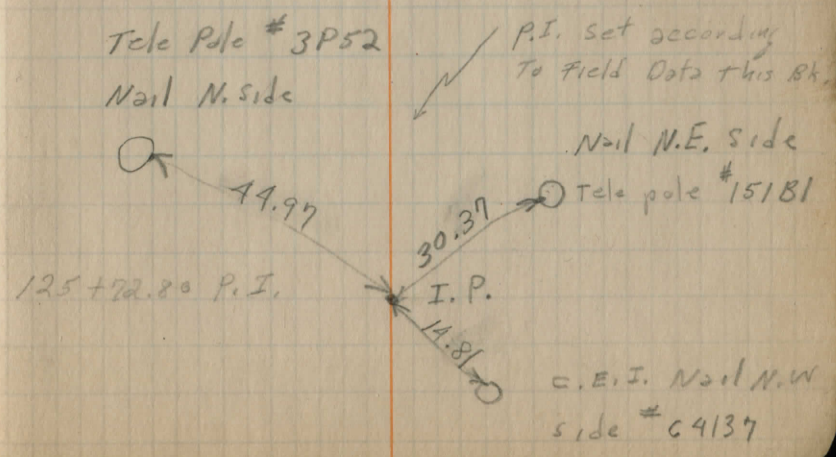 Tele Pole # 3P52
Nail N. side
P.I. Set according
To Field Data this Bk.
Nail N.E. Side
Tele pole #151B1
44.97
30.37
125+72.80 P.I.
I. P.
14.81
C.E.I. Nail N.W
side # C4137